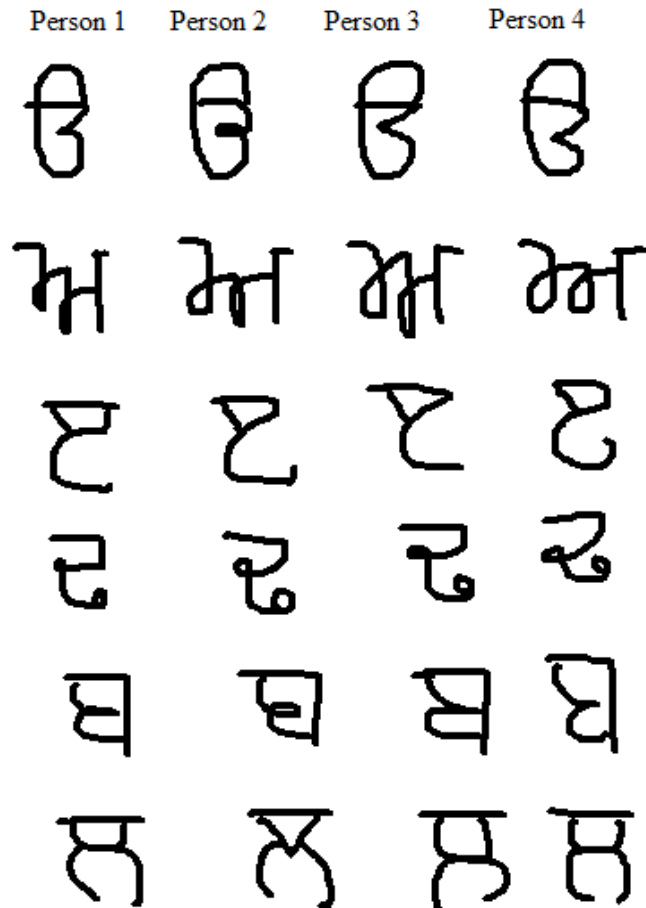 Person 1 Person 2 Person 3 Person 4
ੳ ੳ ੳ ੳ
ਅ ਅ ਅ ਅ
ੲ ੲ ੲ ੲ
ਢ ਢ ਢ ਢ
ਘ ਘ ਘ ਘ
ਲ ਲ ਲ ਲ